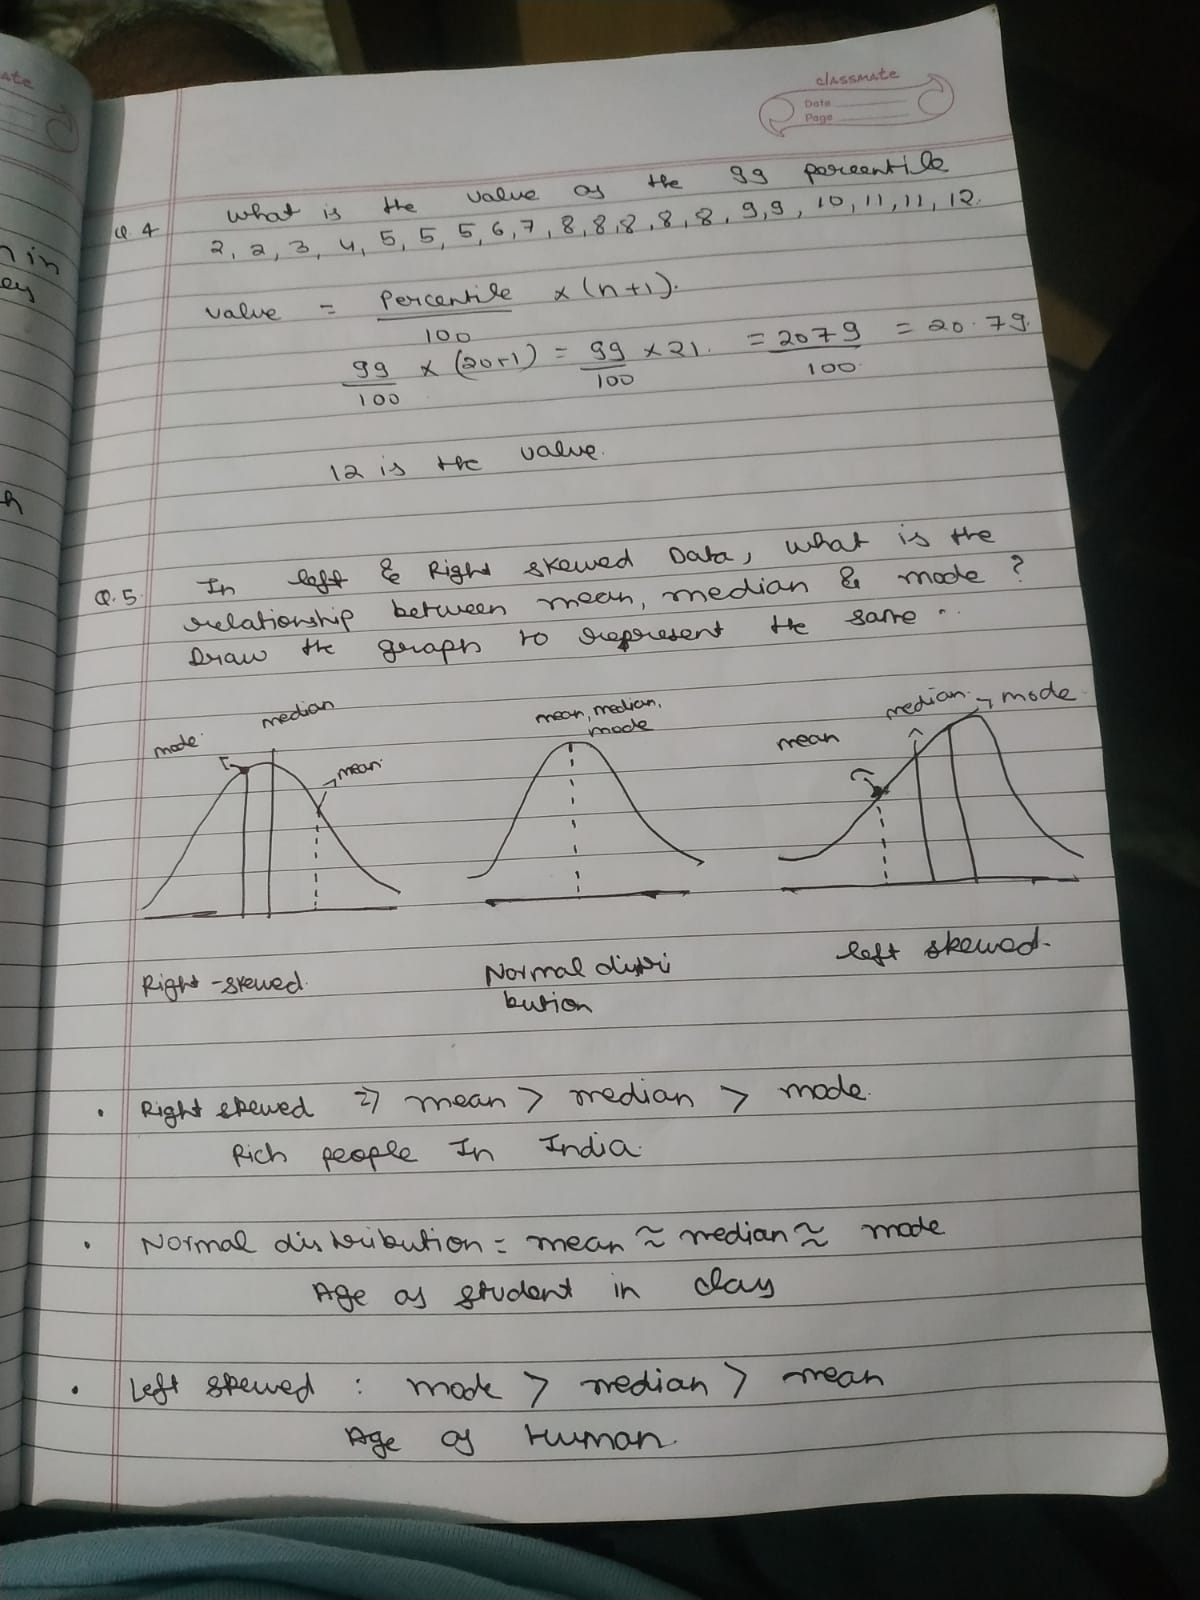 classmate
Date
Page
Q.4 What is the value of the 99 percentile
2, 2, 3, 4, 5, 5, 5, 6, 7, 8, 8, 8, 8, 8, 9, 9, 10, 11, 11, 12.
value = Percentile / 100 × (n+1).
99/100 × (20+1) = 99/100 × 21. = 2079/100 = 20.79.
12 is the value.
Q.5. In left & Right skewed Data, what is the
relationship between mean, median & mode ?
Draw the graph to represent the same ..
mode median mean
mean, median, mode
mean median mode
Right-skewed.
Normal distri
bution
left skewed.
• Right skewed => mean > median > mode.
Rich people In India.
• Normal distribution = mean ≈ median ≈ mode
Age of student in class
• Left skewed : mode > median > mean
Age of Human.
ate
in
ey
h